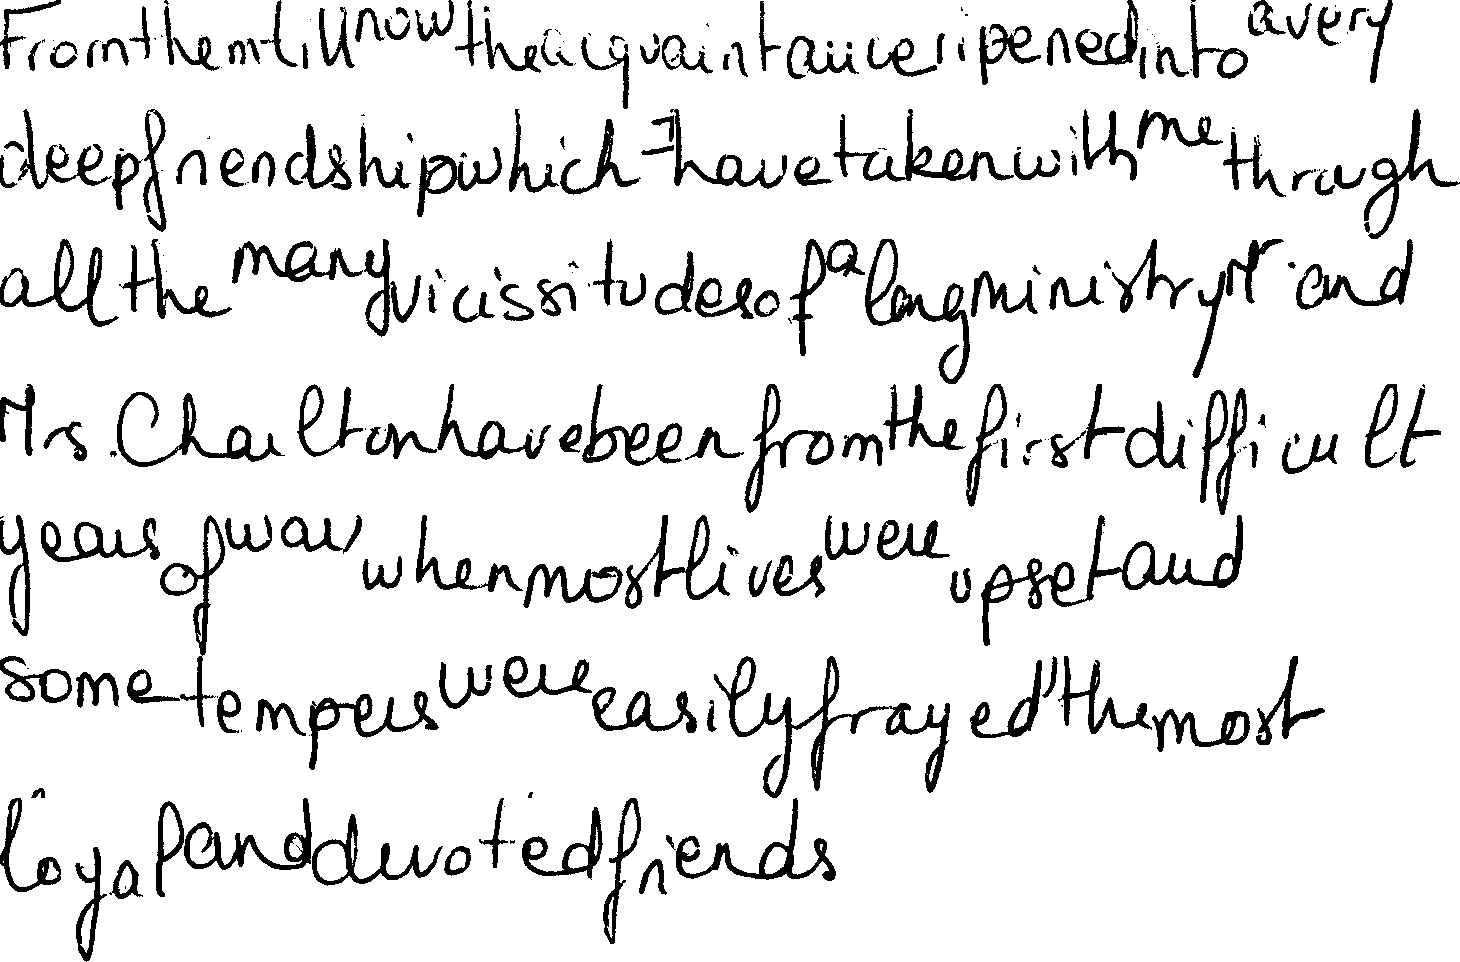 From them till now the acquaintance ripened into a very
deep friendship which I have taken with me through
all the many vicissitudes of a long ministry Mr. and
Mrs. Charlton have been from the first difficult
years of war when most lives were upset and
some tempers were easily frayed" the most
loyal and devoted friends